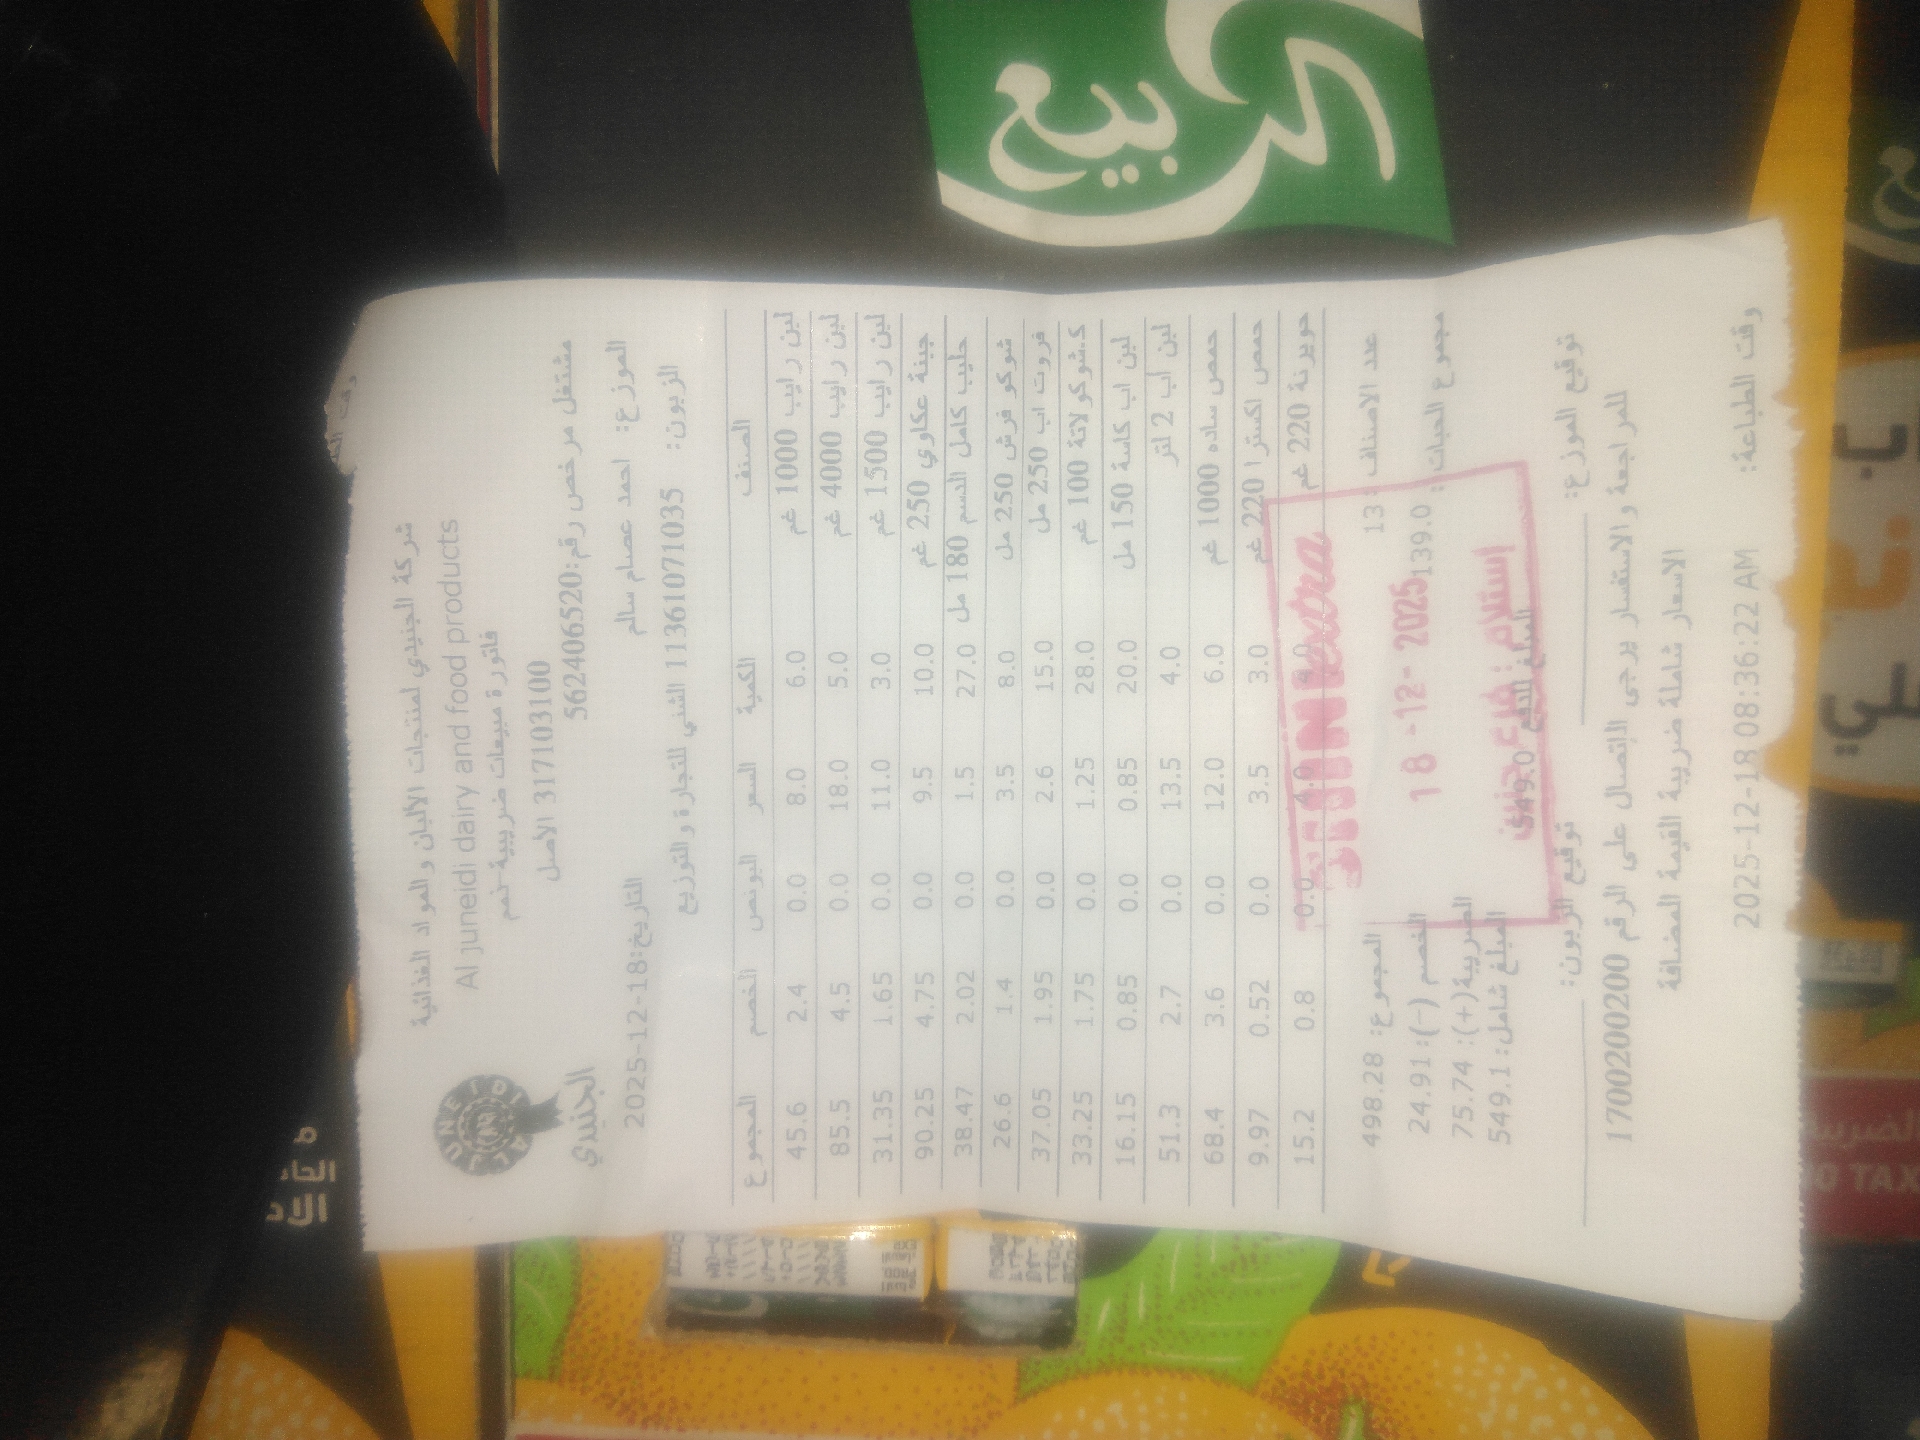 الربيع
شركة الجنيدي لمنتجات الألبان و المواد الغذائية
Al juneidi dairy and food products
فاتورة مبيعات ضريبية-نمم
317103100 الأصل
مشتغل مرخص رقم:562406520
الجنيدي
الموزع: احمد عصام سالم التاريخ:2025-12-18
الزبون: 1136107103​5 الشني للتجارة والتوزيع
الصنف الكمية السعر البونص الخصم المجموع
لبن رايب 1000 غم 6.0 8.0 0.0 2.4 45.6
لبن رايب 4000 غم 5.0 18.0 0.0 4.5 85.5
لبن رايب 1500 غم 3.0 11.0 0.0 1.65 31.35
جبنة عكاوي 250 غم 10.0 9.5 0.0 4.75 90.25
حليب كامل الدسم 180 مل 27.0 1.5 0.0 2.02 38.47
شوكو فرش 250 مل 8.0 3.5 0.0 1.4 26.6
فروت اب 250 مل 15.0 2.6 0.0 1.95 37.05
ك.شوكولاتة 100 غم 28.0 1.25 0.0 1.75 33.25
لبن اب كاسة 150 مل 20.0 0.85 0.0 0.85 16.15
لبن أب 2 لتر 4.0 13.5 0.0 2.7 51.3
حمص ساده 1000 غم 6.0 12.0 0.0 3.6 68.4
حمص اكسترا 220 غم 3.0 3.5 0.0 0.52 9.97
حويرنة 220 غم 4.0 4.0 0.0 0.8 15.2
عدد الاصناف : 13 المجموع: 498.28
مجموع الحبات: 139.0 الخصم (-): 24.91
الضريبة(+): 75.74
المبلغ للدفع 549.0 المبلغ شامل: 549.1
extra
18 -12- 2025
إستلام : فرع جنين
توقيع الموزع: توقيع الزبون:
للمراجعة و الاستفسار يرجى الاتصال على الرقم 1700200200
الاسعار شاملة ضريبة القيمة المضافة
وقت الطباعة: 2025-12-18 08:36:22 AM